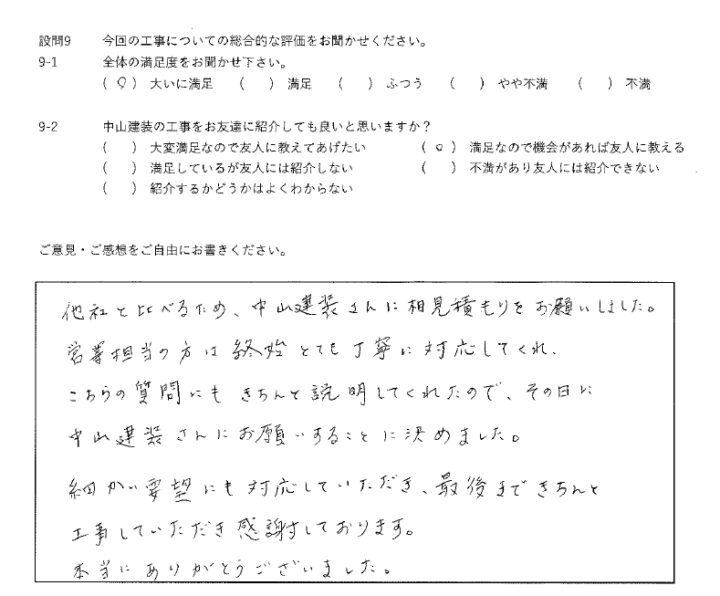 設問9 今回の工事についての総合的な評価をお聞かせください。
9-1 全体の満足度をお聞かせ下さい。
(○) 大いに満足 ( ) 満足 ( ) ふつう ( ) やや不満 ( ) 不満
9-2 中山建装の工事をお友達に紹介しても良いと思いますか？
( ) 大変満足なので友人に教えてあげたい (○) 満足なので機会があれば友人に教える
( ) 満足しているが友人には紹介しない ( ) 不満があり友人には紹介できない
( ) 紹介するかどうかはよくわからない
ご意見・ご感想をご自由にお書きください。
他社と比べるため、中山建装さんに相見積もりをお願いしました。
営業担当の方は終始とても丁寧に対応してくれ、
こちらの質問にもきちんと説明してくれたので、その日に
中山建装さんにお願いすることに決めました。
細かい要望にも対応していただき、最後まできちんと
工事していただき感謝しております。
本当にありがとうございました。